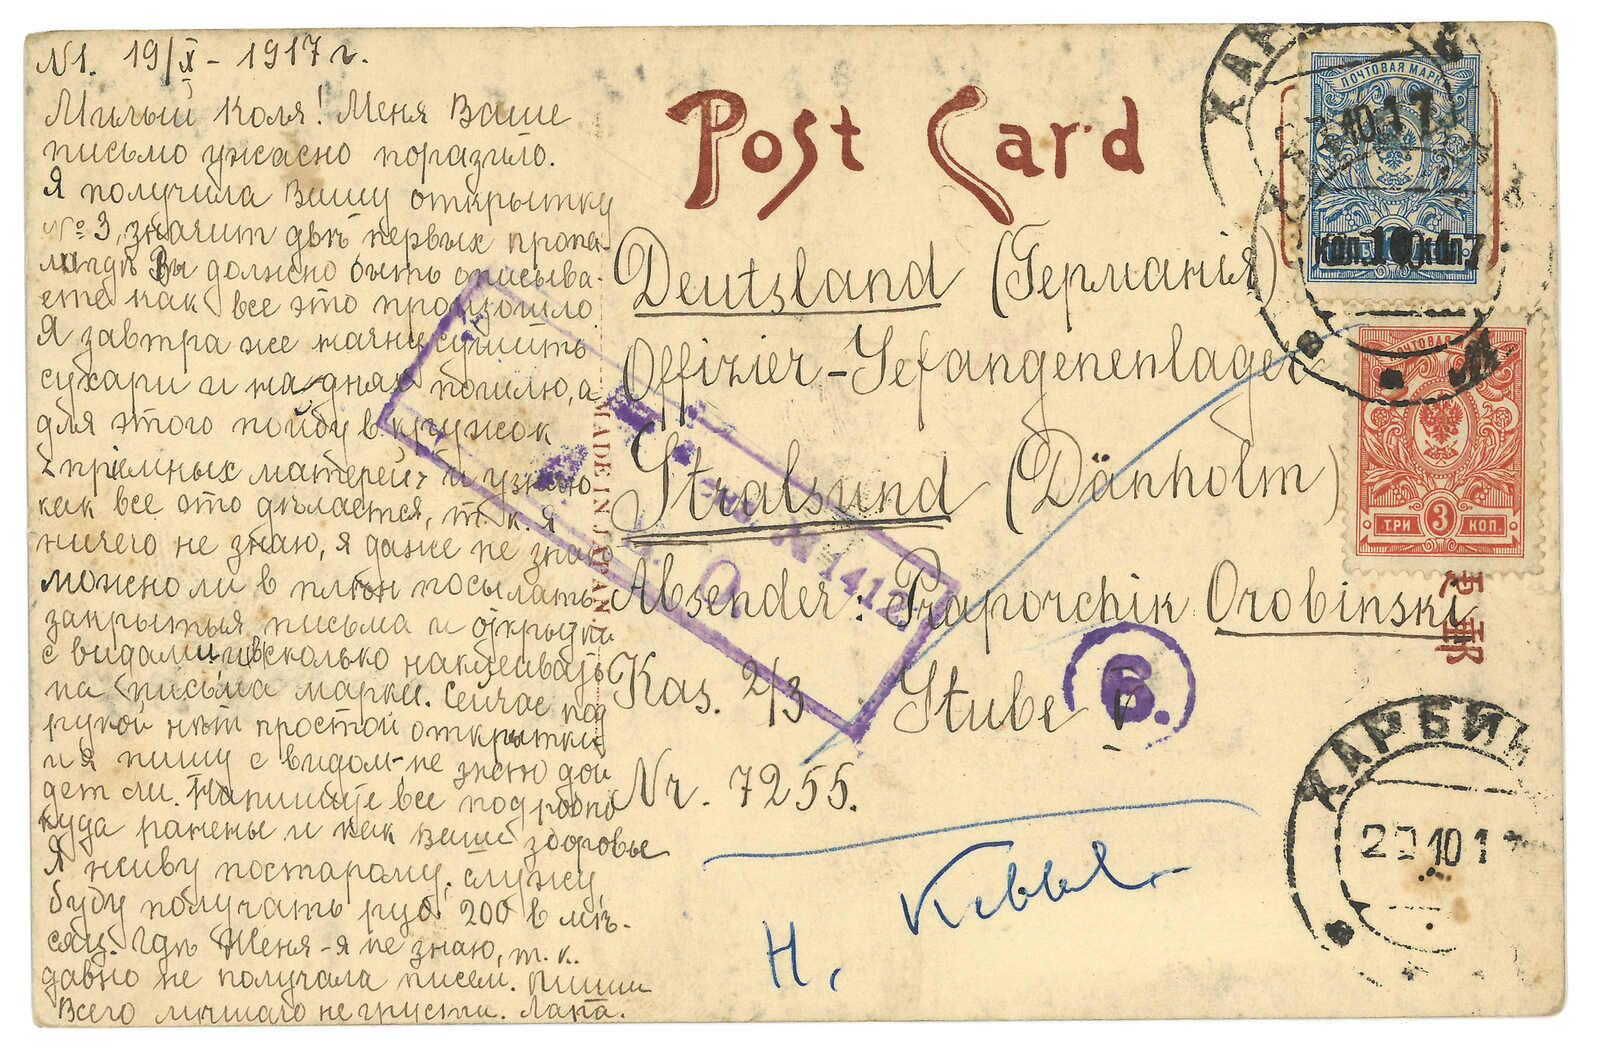 N1. 19/X - 1917 г.
Милый Коля! Меня Ваше
письмо ужасно поразило.
Я получила Вашу открытку
№ 3, значит двѣ первых пропа-
ли гдѣ Вы должно быть описыва-
ете как все это произошло.
Я завтра же начну сушить
сухари и на-днях пошлю, а
для этого пойду в кружок
"приемных матерей" и узнаю
как все это дѣлается, т. к. я
ничего не знаю, я даже не знаю
можно ли в плѣн посылать
закрытыя письма и открытки
с видами и сколько наклеивать
на письма марки. Сейчас под
рукой нѣт простой открытки
и я пишу с видом, не знаю дой-
дет ли. Напишите все подробно
куда ранены и как Ваше здоровье
Я живу постарому, служу,
буду получать руб. 200 в мѣ-
сяц. Гдѣ Женя - я не знаю, т. к.
давно не получала писем. Пиши
Всего лучшаго не грусти. Лапа.
Post Card
MADE IN JAPAN
Deutsland (Германія)
Offizier-Gefangenenlager
Stralsund (Dänholm)
Absender: Praporchik Orobinski
Kas. 2/3 Stube V
Nr. 7255.
H.
№ 1412
6.
ПОЧТОВАЯ МАРКА
коп. 10 коп.
ПОЧТОВАЯ
ТРИ 3 КОП.
10.17
ХАРБИН
10 1